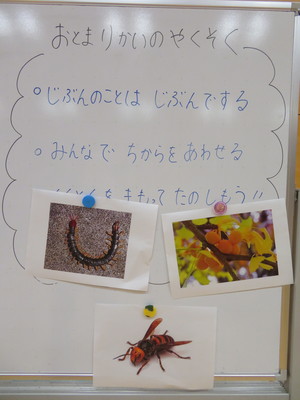 おとまりかいのやくそく
○じぶんのことは じぶんでする
○みんなで ちからをあわせる
をまもって たのしもう!!